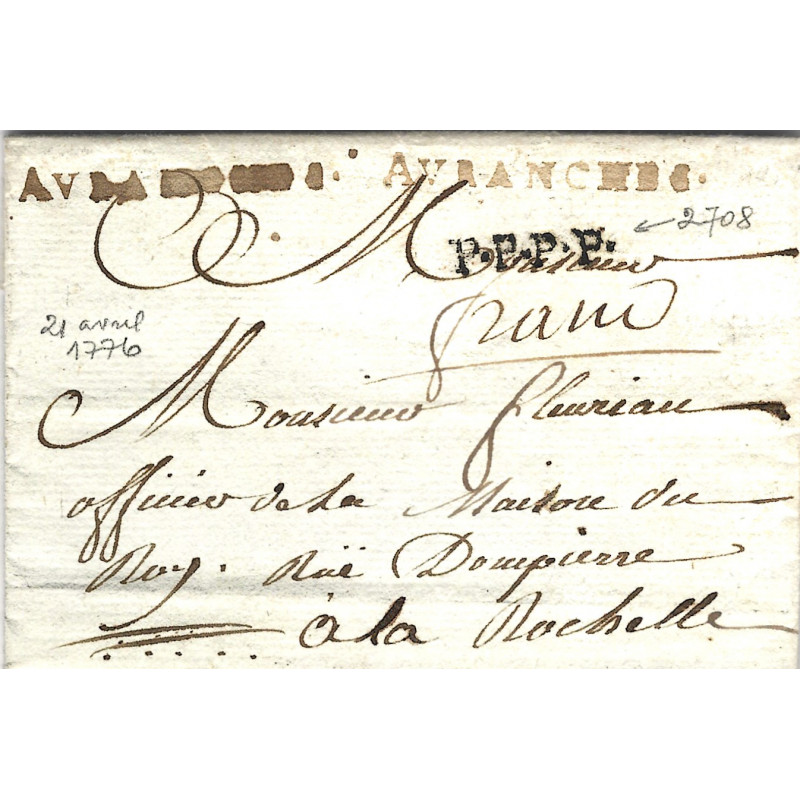 AVRANCHES. AVRANCHES.
← 2708
P.P.P.P.
Monsieur
franc
21 avril
1776
Monsieur fleuriau
officier de la Maison du
Roy. Rüe Dompierre
à la Rochelle